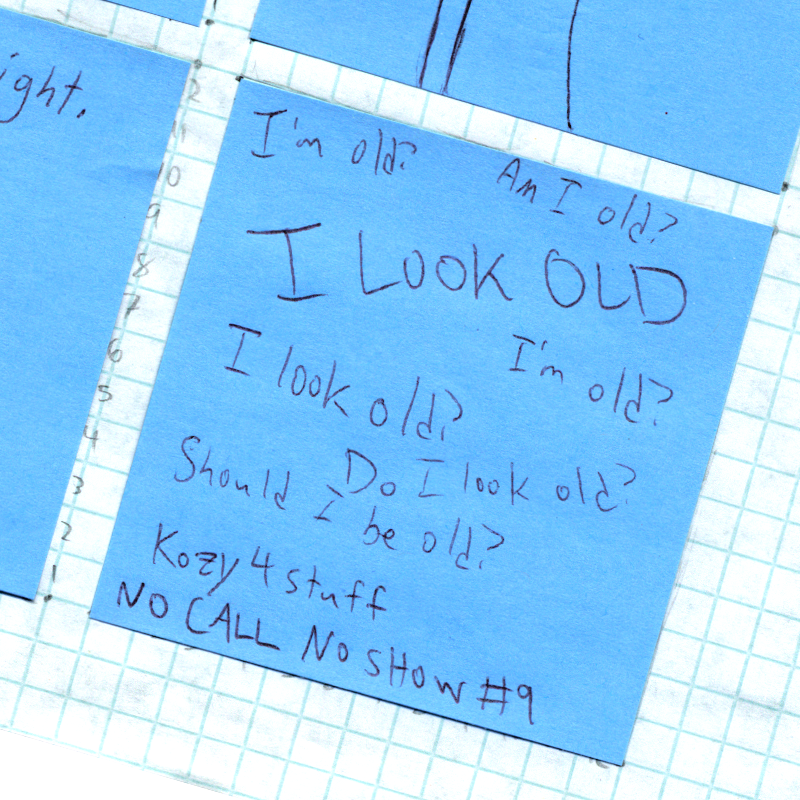 ight.
12
11
10
9
8
7
6
5
4
3
2
1
I'm old?
Am I old?
I LOOK OLD
I'm old?
I look old?
Do I look old?
Should I be old?
Kozy 4 stuff
NO CALL NO SHOW #9